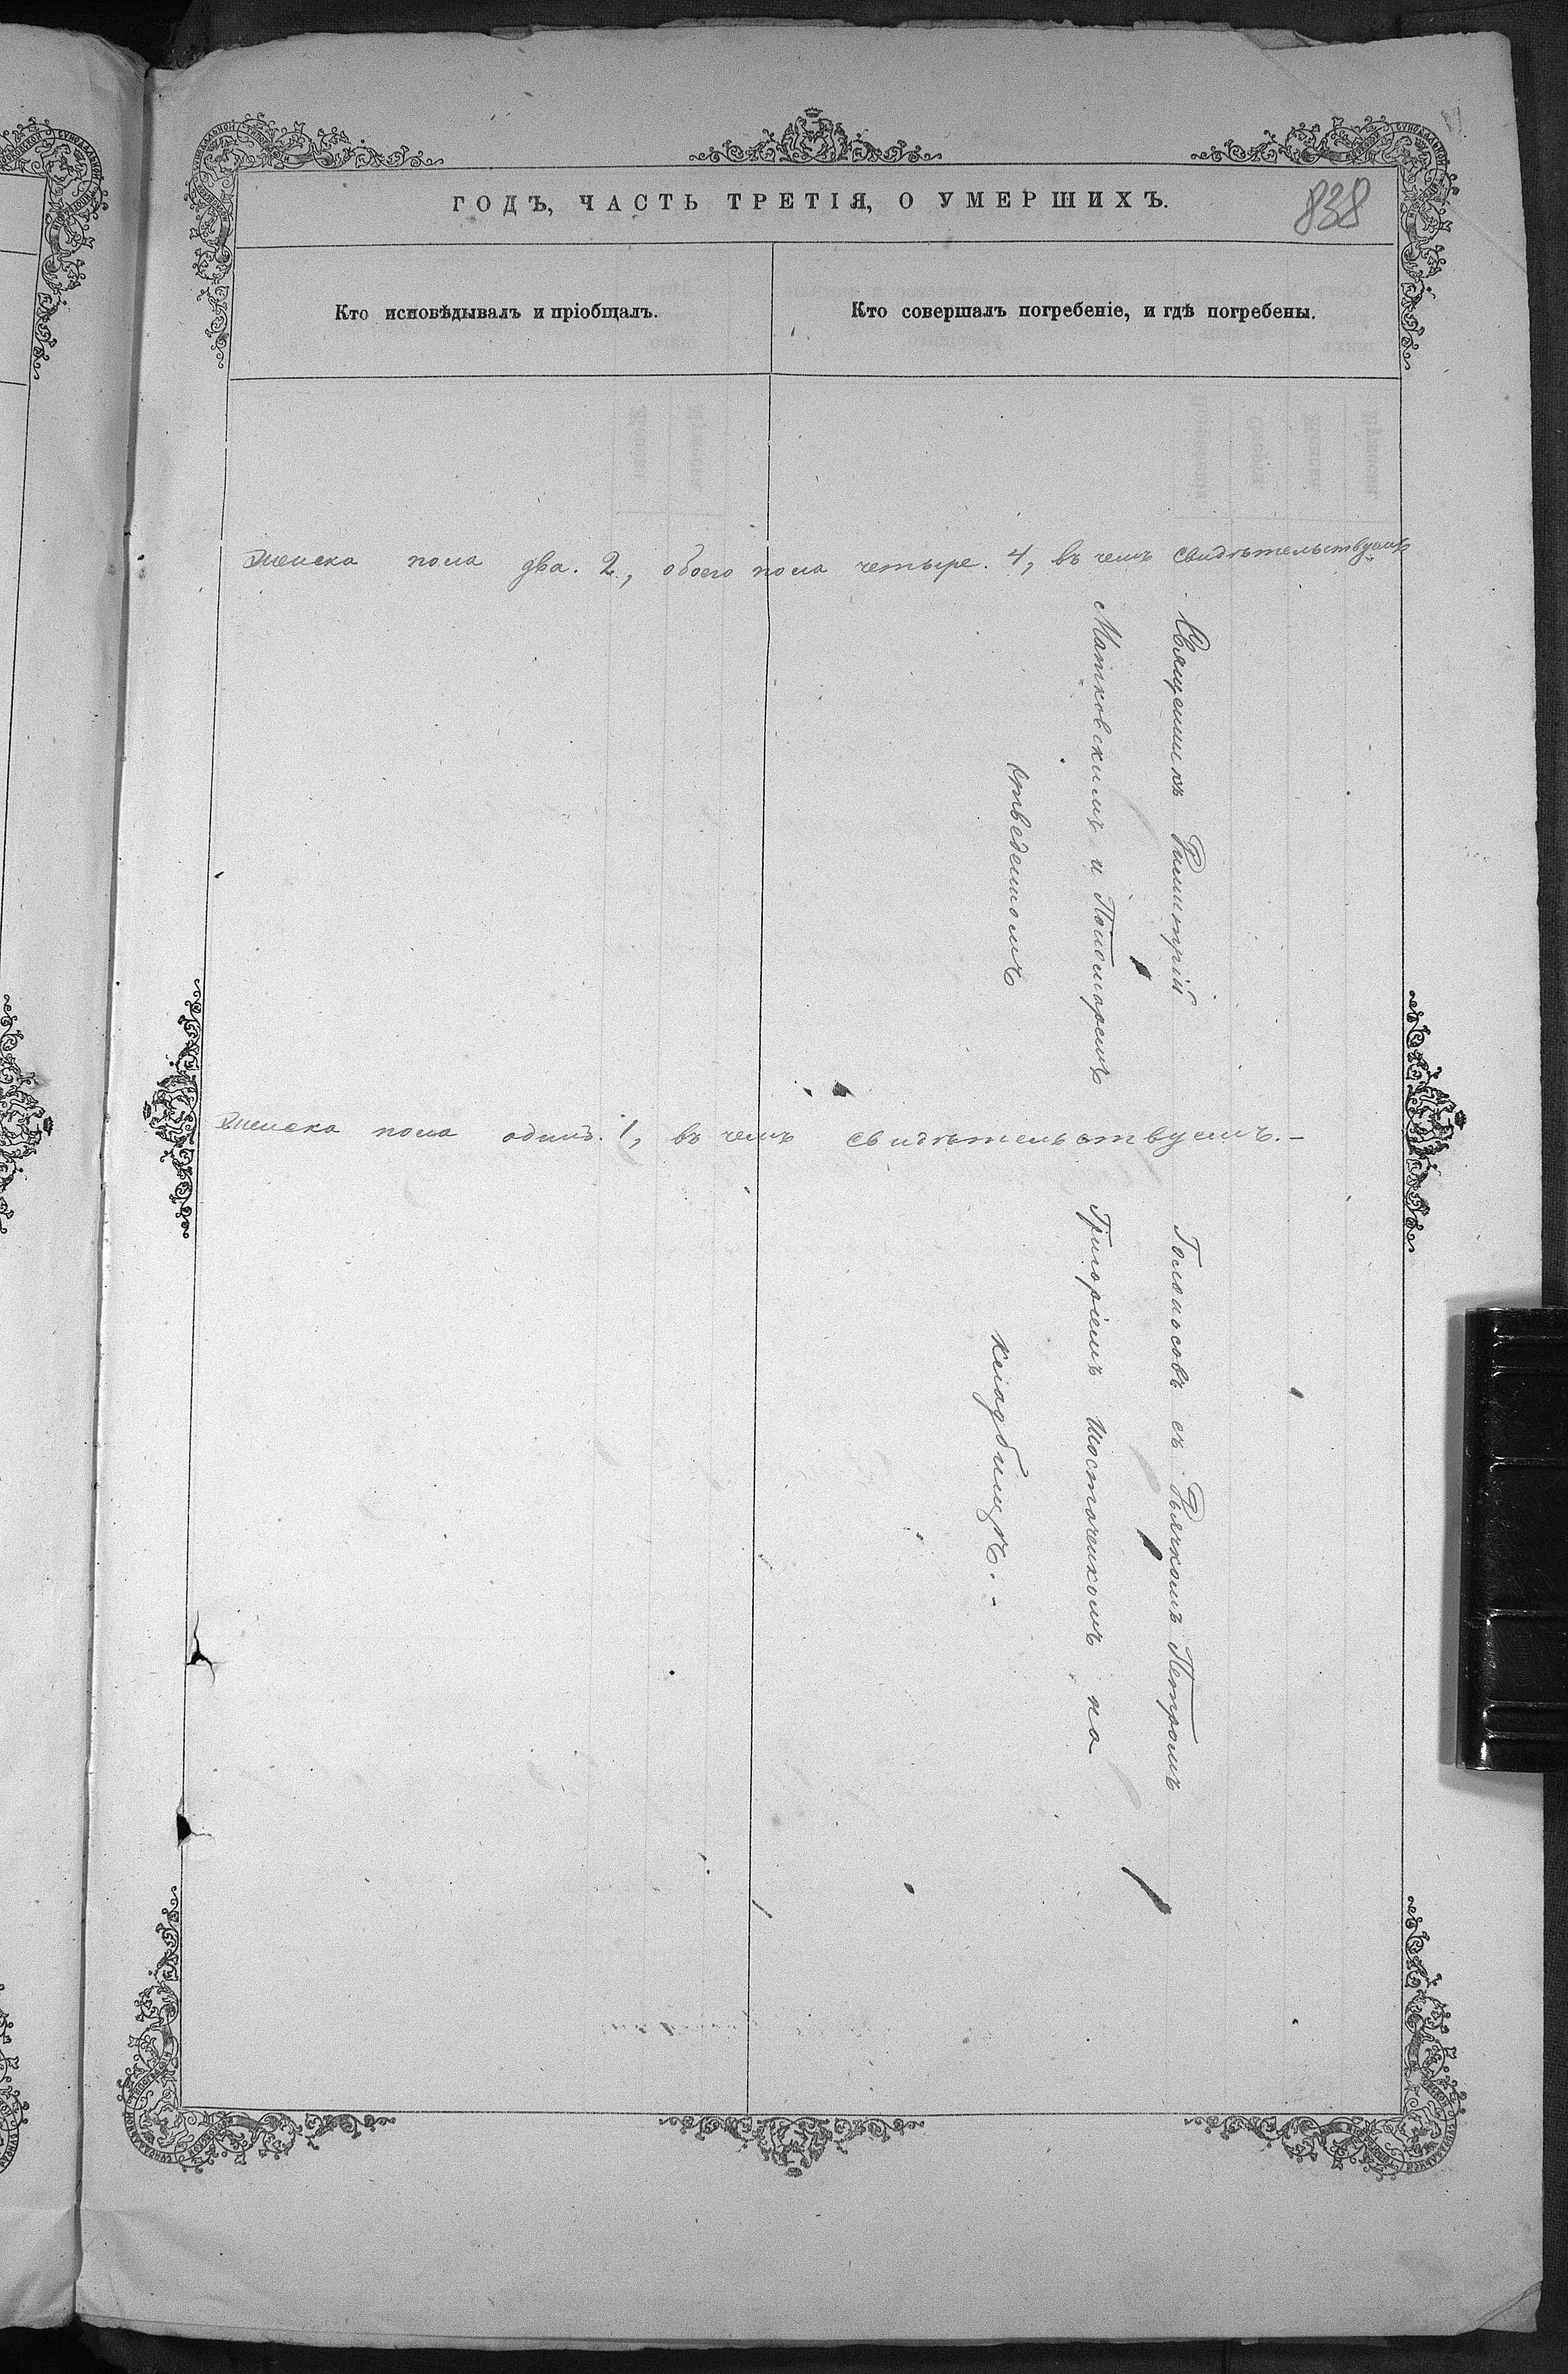 ГОДЪ, ЧАСТЬ ТРЕТІЯ, О УМЕРШИХЪ.
838
Кто исповѣдывалъ и пріобщалъ.
Кто совершалъ погребеніе, и гдѣ погребены.
женска пола два. 2, обоего пола четыре. 4, въ чемъ свидѣтельствуемъ
Священникъ Димитрій Голоносовъ съ Дьячкомъ Петромъ
Матковскимъ и Пономаремъ Григоріемъ Шостаченкомъ на
отведенномъ кладбищѣ.-
женска пола одинъ. 1, въ чемъ свидѣтельствуемъ.-